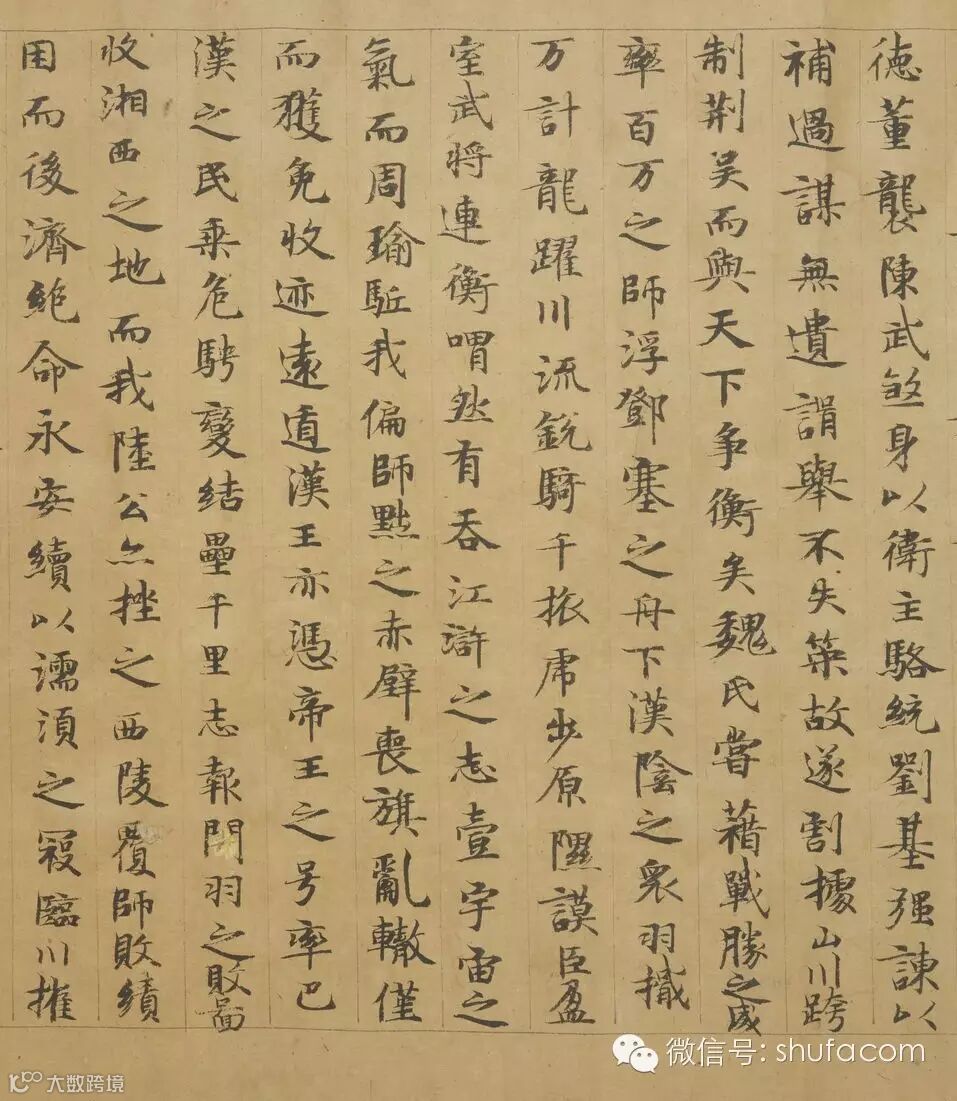 徳董襲陳武煞身以衛主駱統劉基强諫以
補過謀無遺諝舉不失策故遂割據山川跨
制荆吴而與天下争衡矣魏氏嘗藉戰勝之威
率百万之師浮鄧塞之舟下漢陰之衆羽檝
万計龍躍川流鋭騎千旅虎步原隰謨臣盈
室武将連衡喟然有吞江滸之志壹宇宙之
氣而周瑜駈我偏師黜之赤壁喪旗亂轍僅
而獲免收迹遠遁漢王亦憑帝王之号率巴
漢之民乗危騁變結壘千里志報關羽之敗啚
收湘西之地而我陸公亦挫之西陵覆師敗績
困而後濟絶命永安續以濡湏之寇臨川摧
微信号: shufacom
大数跨境